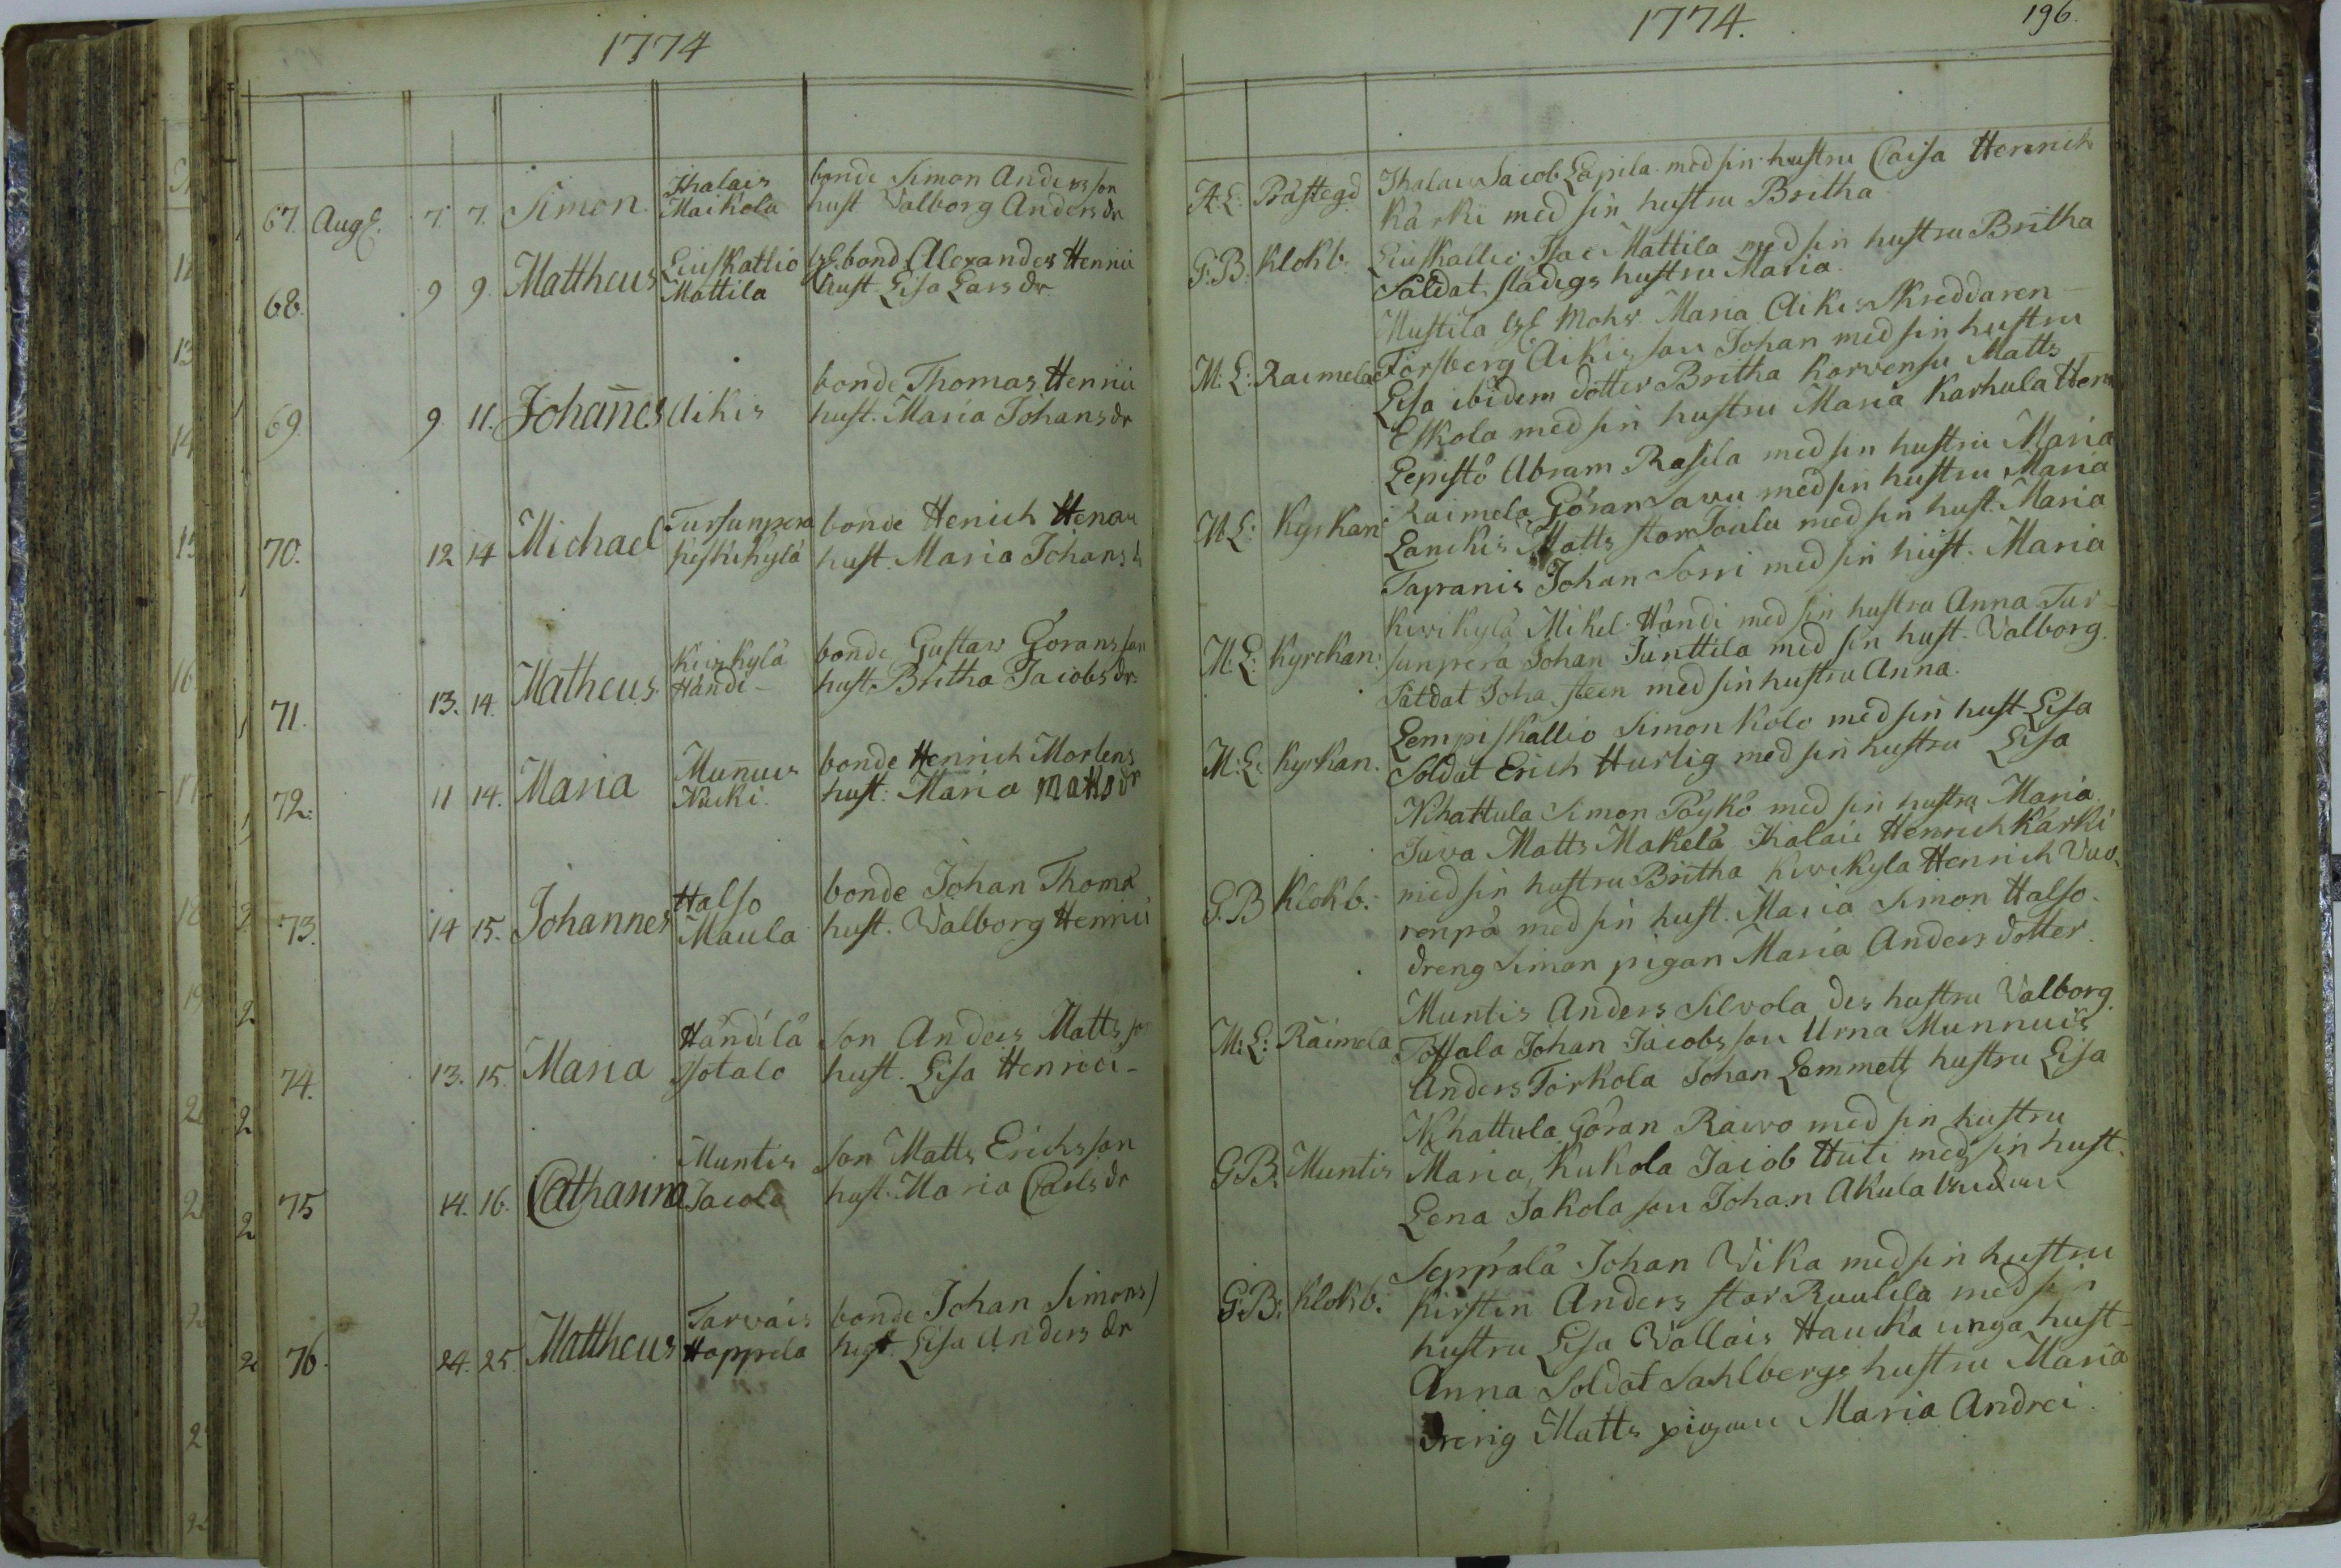 1774
67. Aug. 7. 7. Simon Ihalais bonde Simon Andersson
Maikola hust Valborg Anders dr
68. 9 9. Mattheus Liuskallio bonde Alexander Henrici
Mattila hust. Lisa Lars dr
69. 9. 11. Johañes Aikis bonde Thomas Henrici
hust. Maria Johans dr
70. 12 14 Michael Tursunperä bonde Henich
Keskikylä hust. Maria Johans
71. 13. 14. Matheus Kivikylä bonde Gustav Göransson
Händi hust. Britha Jacobs dr.
72. 11 14. Maria Muñuis bonde Henrich Mortens
Nuki. hust. Maria Matts dr
73. 14 15. Johannes Halso bonde Johan Thomæ
Maula hust. Valborg Henrici
74. 13. 15. Maria Händilä son Anders Mattsson
Isotalo hust. Lisa Henrici
75 14. 16. Catharina Muntis son Matts Erichsson
Jacola hust. Maria Carls dr
76. 24. 25. Mattheus Tarvais bonde Johan Simons
Happela hust. Lisa Anders dr
1774. 196.
A: L: Prästegd Ihalais Jacob Lapila med sin hustru Caisa Henrich
Kärki med sin hustru Britha
G: B. Klokb. Liuskallio Isac Mattila med sin hustru Britha
Saldat, stadigs hustru Maria.
Mustila Mohr Maria Aikis Skreddaren
M: L: Raimela Forsberg Aikis son Johan med sin hustru
Lisa ibidem dotter Britha Korvensu Matts
Eskola med sin hustru Maria Karhula Hen
Lepistö Abram Rasila med sin hustru Maria
M L: Kyrkan Raimela Göran Savu med sin hustru Maria
Lanckis Matts stor Joulu med sin hust. Maria
Tapranis Johan Sorri med sin hust. Maria
Kivikylä Mikel Händi med sin hustru Anna Tur-
M: L: Kyrckan: sunperä Johan Junttila med sin hust. Valborg.
Saldat Joha steen med sin hustru Anna.
Lempiskallio Simon Kolo med sin hust Lisa
M: L: Kyrkan. Soldat Erich Hurtig med sin hustru Lisa
Nihattula Simon Päykö med sin hustru Maria
Juva Matts Makelä Ihalais Henrich Kärki
G. B Klokb: med sin hustru Britha Kivikyla Henrich Vuo-
renpä med sin hust. Maria Simon Halso-
dreng Simon pigan Maria Andersdotter.
Muntis Anders Silvola des hustru Valborg.
M: L: Raimela Tossala Johan Jacobsson Urna Munnuis
Anders Torkola Johan Lemmett hustru Lisa
Nihattula Göran Raivo med sin hustru
G: B: Muntis Maria, Kukola Jacob Huti med sin hust.
Lena Jakola son Johan Akula
Seppälä Johan Wika med sin hustru
G: B: Klokb: Kirstin Anders stor Ruulila med sin
hustru Lisa Vallais Haucka unga hust-
Anna Soldat Sahlbergs hustru Maria
dreng Matts pigan Maria Andrei.